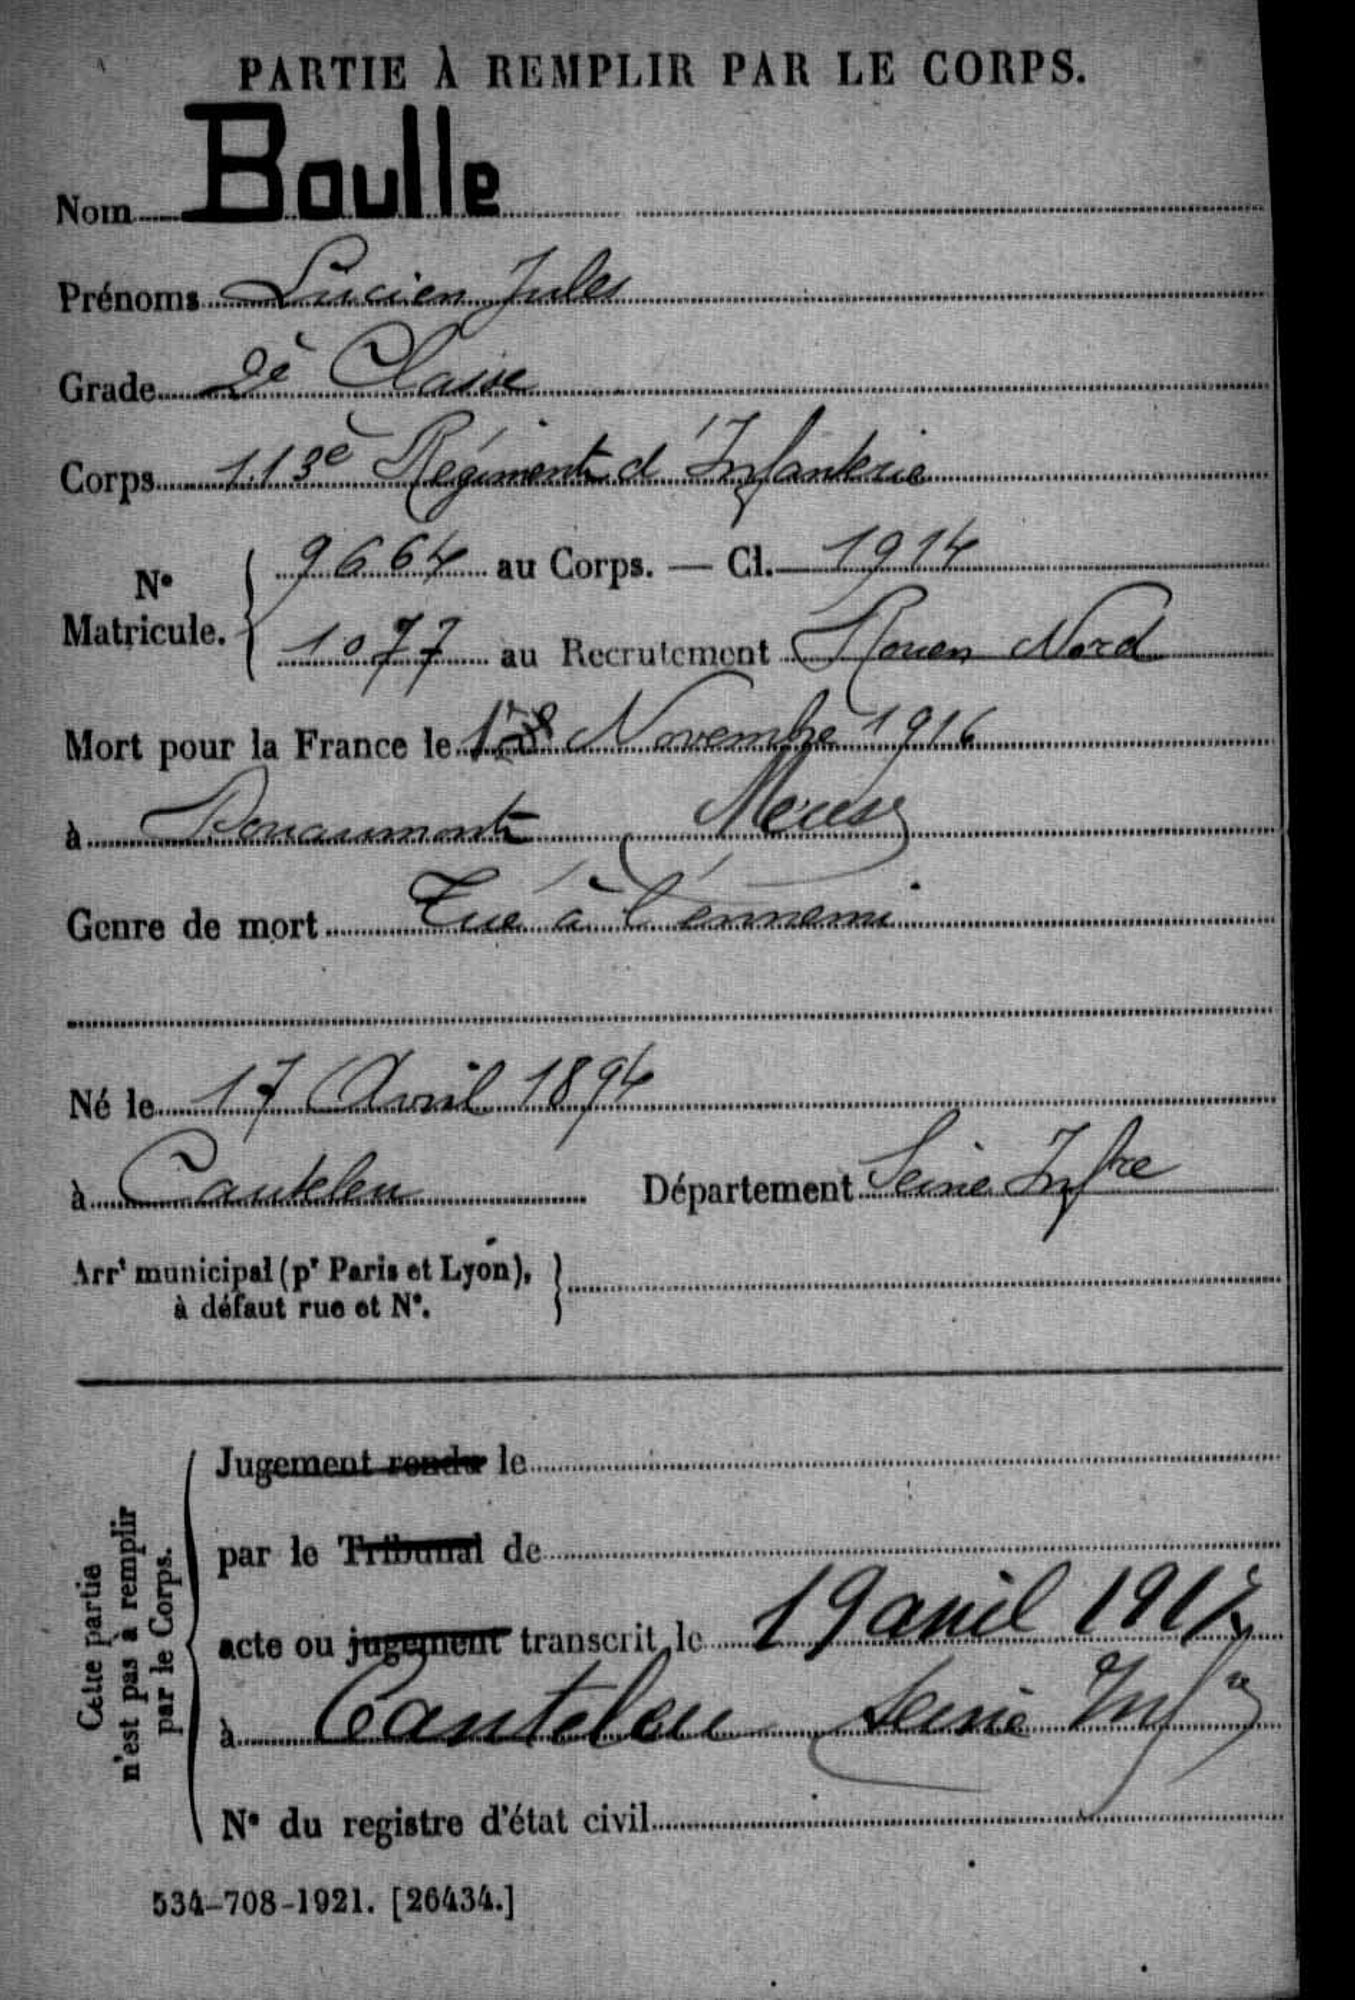 PARTIE À REMPLIR PAR LE CORPS.
Nom Boulle
Prénoms Lucien Jules
Grade 2è Classe
Corps 113è Régiment d'Infanterie
N° Matricule. { 9664 au Corps. — Cl. 1914
1077 au Recrutement Rouen Nord
Mort pour la France le Novembre 1916
à Douaumont Meuse
Genre de mort Tué à l'ennemi
Né le 17 Avril 1894
à Canteleu Département Seine Infre
Arrt municipal (pr Paris et Lyon), }
à défaut rue et N°.
Cette partie
n'est pas à remplir
par le Corps.
Jugement rendu le
par le Tribunal de
acte ou jugement transcrit le 19 avril 1917
à Canteleu Seine Infre
N° du registre d'état civil
534-708-1921. [26434.]